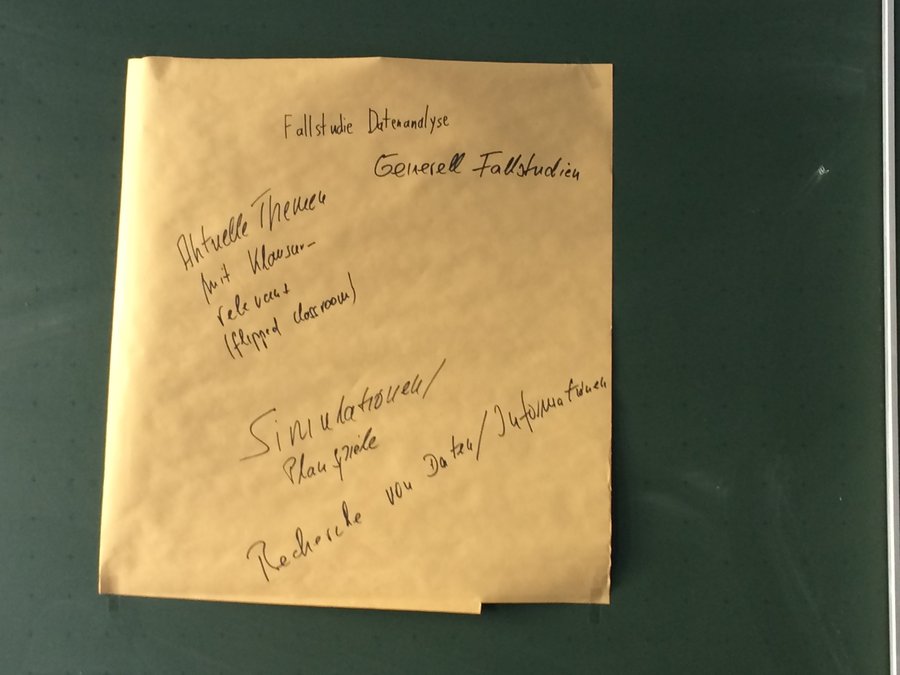 Fallstudie Datenanalyse
Generell Fallstudien
Aktuelle Themen
mit Klausur-
relevanz
(flipped classroom)
Simulationen/
Planspiele
Recherche von Daten/Informationen